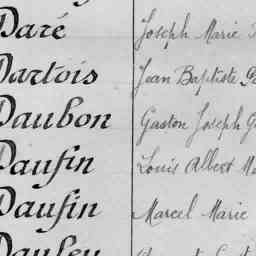 Daré Joseph Marie
Dartois Jean Baptiste
Daubon Gaston Joseph
Daufin Louis Albert
Daufin Marcel Marie